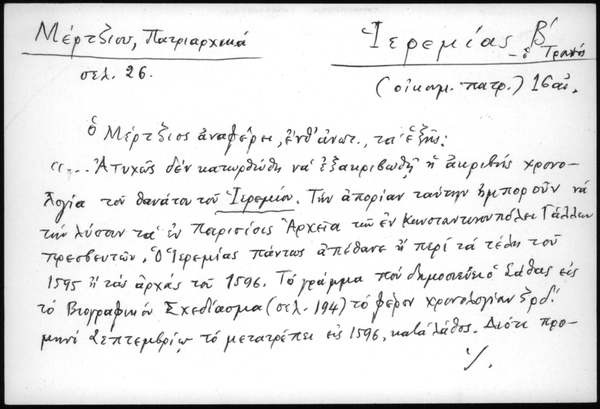 Μέρτζιου, Πατριαρχικά
σελ. 26.
Ἱερεμίας Β΄
- ὁ Τρανός
(οἰκουμ. πατρ.) 16 αἰ.
ὁ Μέρτζιος ἀναφέρει, ἔνθ' ἀνωτ., τὰ ἑξῆς:
"... Ἀτυχῶς δὲν κατωρθώθη νὰ ἐξακριβωθῇ ἡ ἀκριβὴς χρονο-
λογία τοῦ θανάτου τοῦ Ἱερεμίου. Τὴν ἀπορίαν ταύτην ἠμποροῦν νὰ
τὴν λύσουν τὰ ἐν Παρισίοις Ἀρχεῖα τῶν ἐν Κωνσταντινουπόλει Γάλλων
πρεσβευτῶν. Ὁ Ἱερεμίας πάντως ἀπέθανε ἢ περὶ τὰ τέλη τοῦ
1595 ἢ τὰς ἀρχὰς τοῦ 1596. Τὸ γράμμα ποὺ δημοσιεύει ὁ Σάθας εἰς
τὸ Βιογραφικὸν Σχεδίασμα (σελ. 194) τὸ φέρον χρονολογίαν ͵ζρδ΄
μηνὶ Σεπτεμβρίῳ τὸ μετατρέπει εἰς 1596, κατὰ λάθος. Διότι προ-
./.